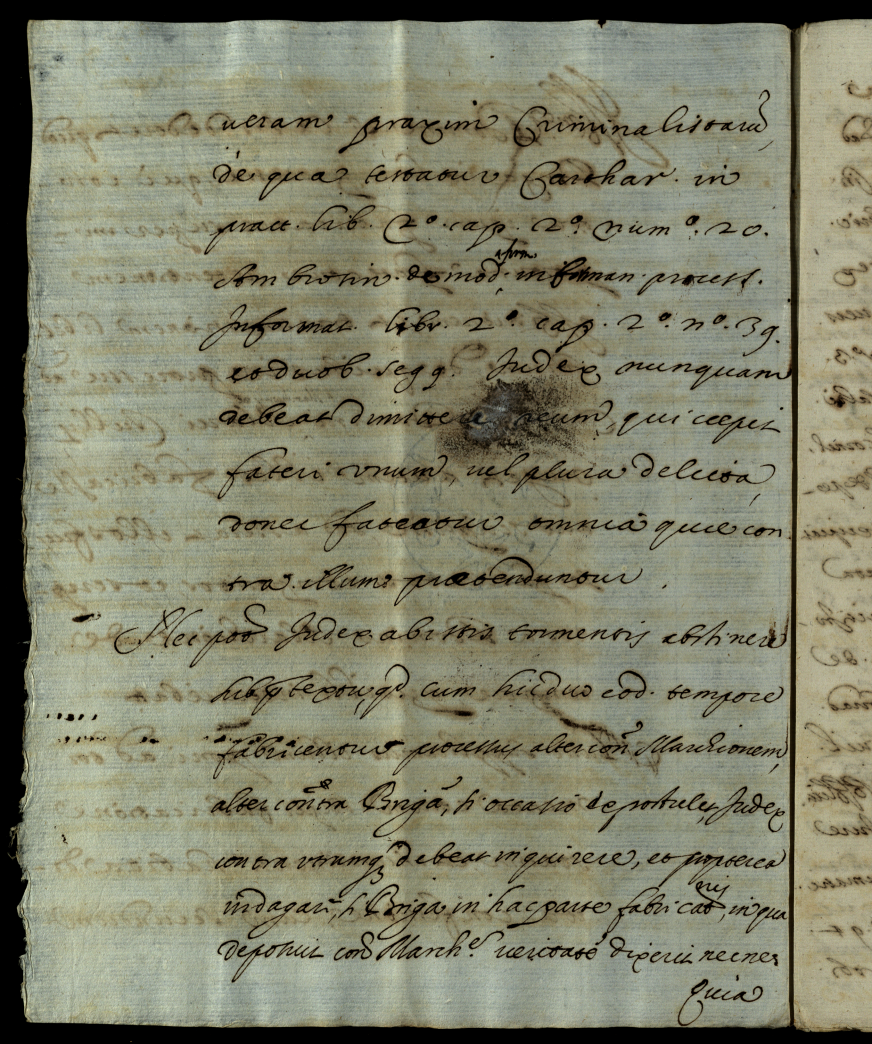 ueram praxim Criminalistarũ,
de qua testatur Carthar. in
pract. lib. 2º. cap. 2º. num º. 20.
Ambrosin. de mod. informan. process.
Informat. libr. 2º. cap. 2º. nº. 39.
et duob. seqq. Judex nunquam
debeat dimittere reum, qui cepit
fateri vnum, uel plura delicta,
donec fateatur omnia quæ con
tra illum prætenduntur.
Nec põt Judex ab istis tormentis abstinere
sub ptextu, qd. cum hic duo eod. tempore
fabricentur processus alter con Marchionem,
alter contra Brigã, si occasio id postulet, Judex
contra vtrumq; debeat inquirere, et propterea
indagare, si Briga in hac parte fabricat nis, in qua
deposuit cont Marche. ueritatẽ dixerit necne,
Quia